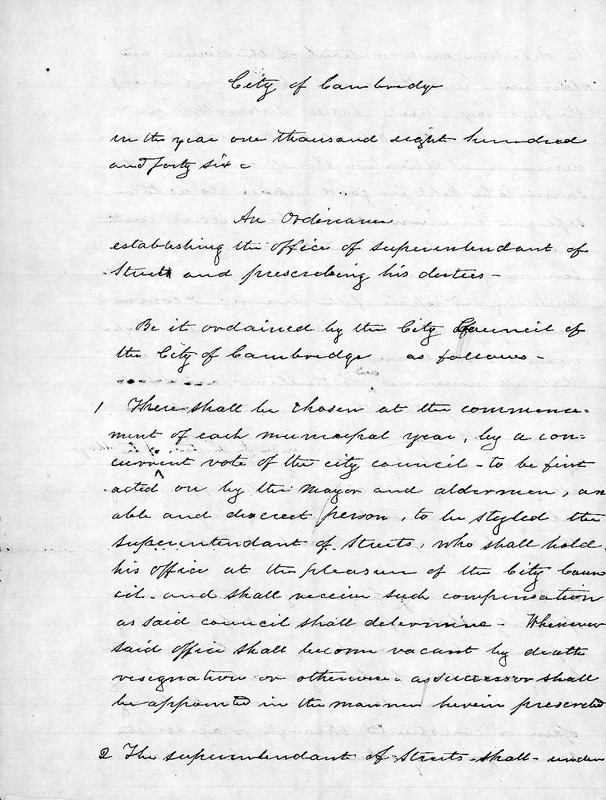 City of Cambridge
in the year one thousand eight hundred
and forty six
An Ordinance
establishing the office of superintendant of
Streets and prescribing his duties -
Be it ordained by the City Council of
the City of Cambridge as follows -
1 There shall be chosen at the commence-
ment of each municipal year, by a con-
current vote of the city council - to be first
acted on by the Mayor and aldermen, an
able and discreet person, to be styled the
superintendant of streets, who shall hold
his office at the pleasure of the City Coun
cil - and shall receive such compensation
as said council shall determine - Whenever
said office shall become vacant by death
resignation or otherwise a successor shall
be appointed in the manner herein prescribed
2 The superintendant of Streets shall - under